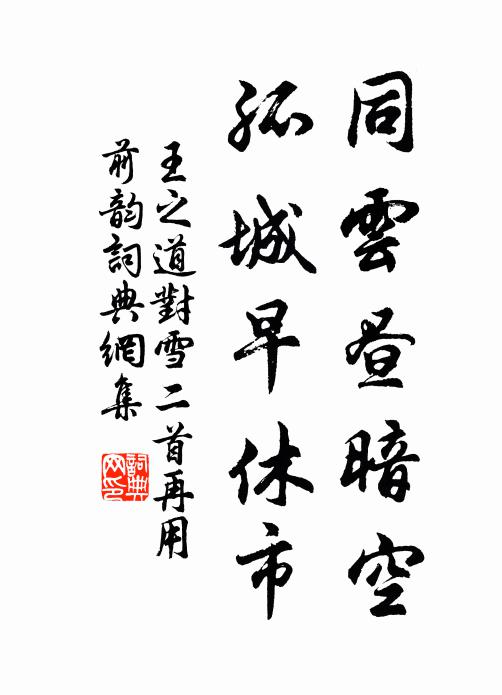 同雲昼暗空
孤城早休市
王之道對雪二首再用
前韵詞典網集
詞典
网印